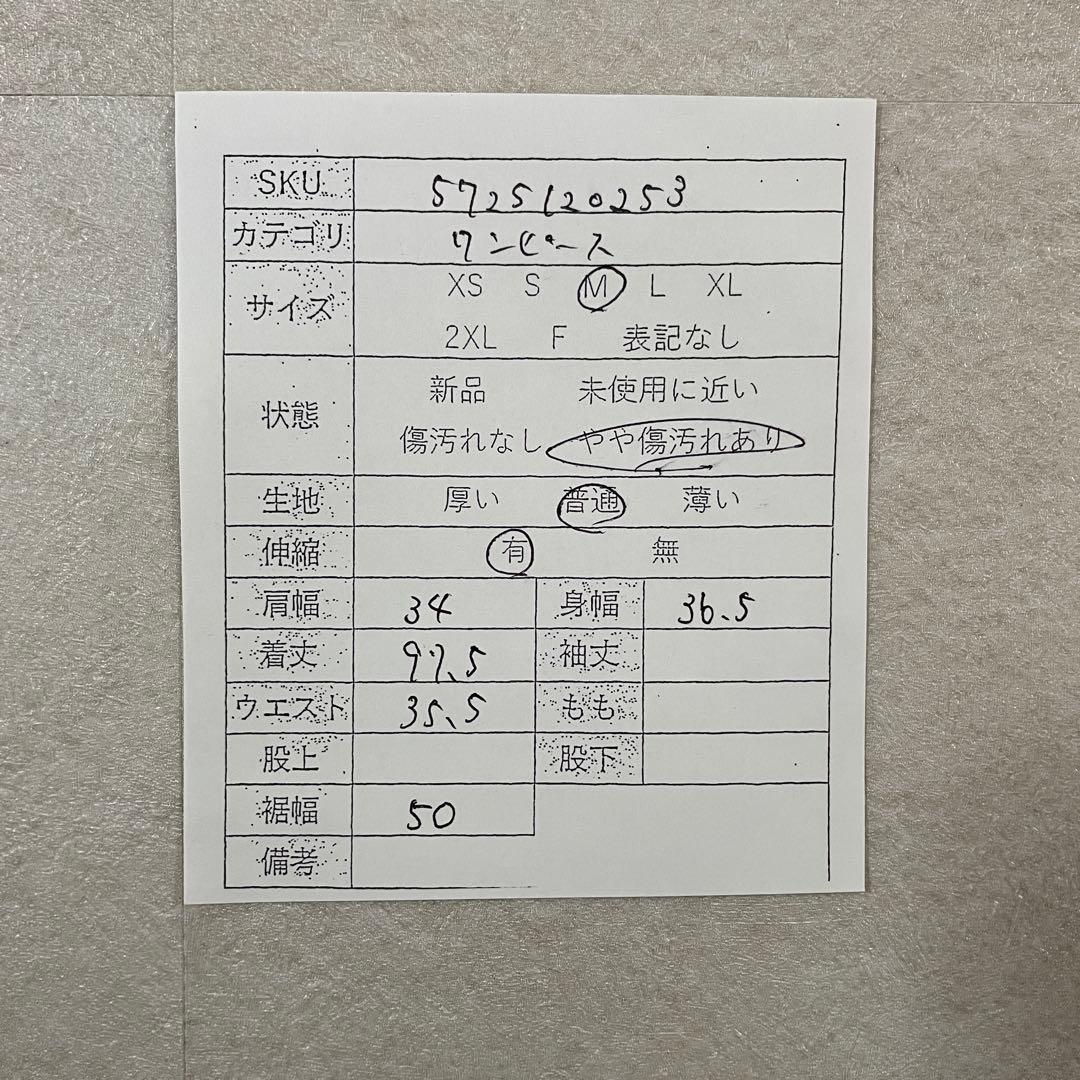 SKU 5725120253
カテゴリ ワンピース
サイズ XS S M L XL
2XL F 表記なし
状態 新品 未使用に近い
傷汚れなし やや傷汚れあり
生地 厚い 普通 薄い
伸縮 有 無
肩幅 34 身幅 36.5
着丈 97.5 袖丈
ウエスト 35.5 もも
股上 股下
裾幅 50
備考